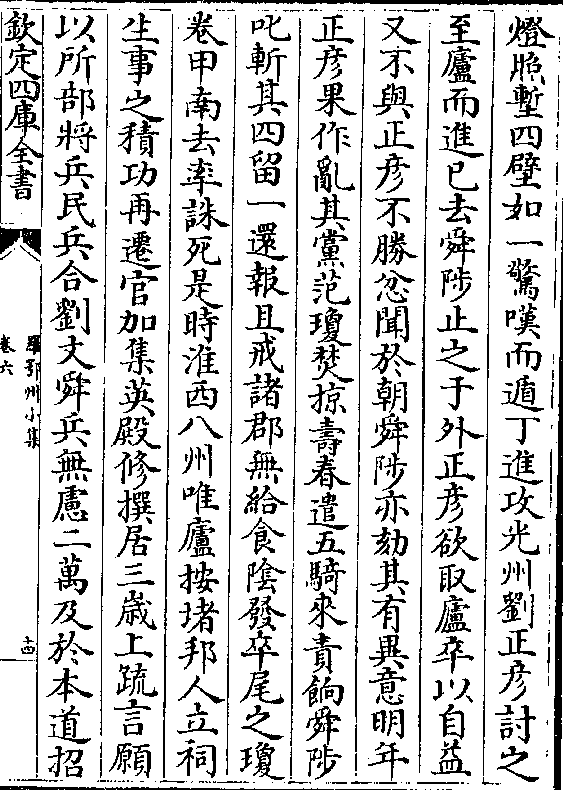 燈照塹四壁如一驚嘆而遁丁進攻光州劉正彦討之
至廬而進已去舜陟止之于外正彦欲取廬卒以自益
又不與正彦不勝忿聞於朝舜陟亦劾其有異意明年
正彦果作亂其黨范瓊焚掠壽春遣五騎來責餉舜陟
叱斬其四留一還報且戒諸郡無給食陰發卒尾之瓊
卷甲南去率誅死是時淮西八州唯廬按堵邦人立祠
生事之積功再遷官加集英殿修撰居三歲上疏言願
以所部將兵民兵合劉文舜兵無慮二萬及於本道招
欽定四庫全書
羅鄂州小集
卷六
十四